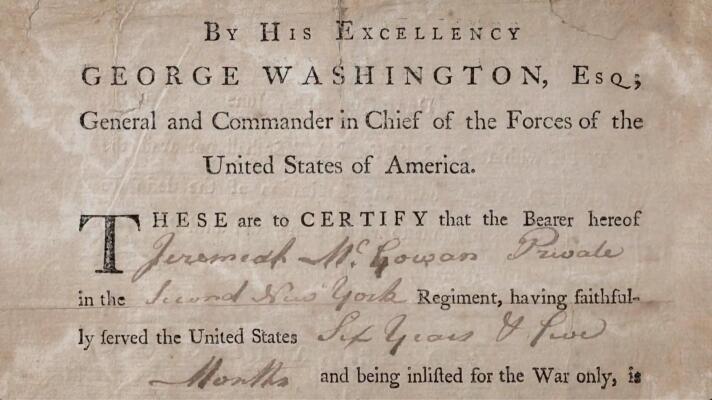 BY HIS EXCELLENCY
GEORGE WASHINGTON, ESQ;
General and Commander in Chief of the Forces of the
United States of America.
THESE are to CERTIFY that the Bearer hereof
Jeremiah McGowan Private
in the Second New York Regiment, having faithful-
ly ſerved the United States Six Years & Five
Months and being inliſted for the War only, is